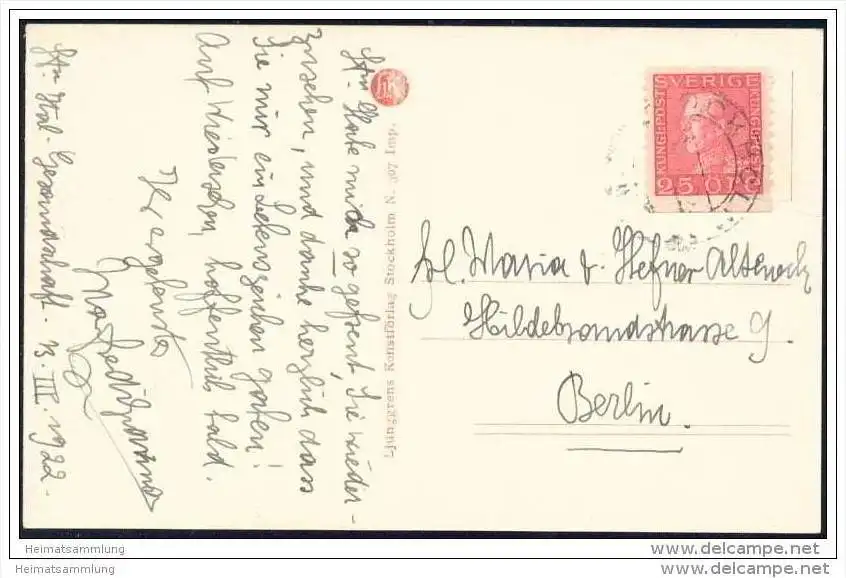 Stm. Habe mich so gefreut, Sie wieder-
zusehen, und danke herzlich dass
Sie mir ein Lebenszeichen gaben!
Auf Wiedersehen, hoffentlich bald.
Ihr ergebenster
Ital. Gesandschaft. 13.III.1922.
Ljunggrens Konstförlag Stockholm N. 397 Imp.
SVERIGE
KUNGL. POST
25 ÖRE
Frl. Maria v. Hefner Alteneck
Hildebrandstrasse 9.
Berlin.
Heimatsammlung
www.delcampe.net
Heimatsammlung
www.delcampe.net